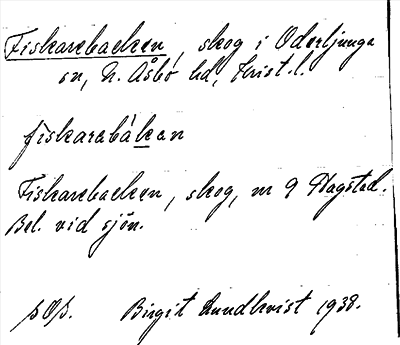 Fiskarebacken, skog i Oderljunga
sn, N. Åsbo hd, Krist. l.
fiskarebákan
Fiskarebacken, skog, nr 9 Hagstad.
Bel. vid sjön.
Birgit Rundkvist 1938.